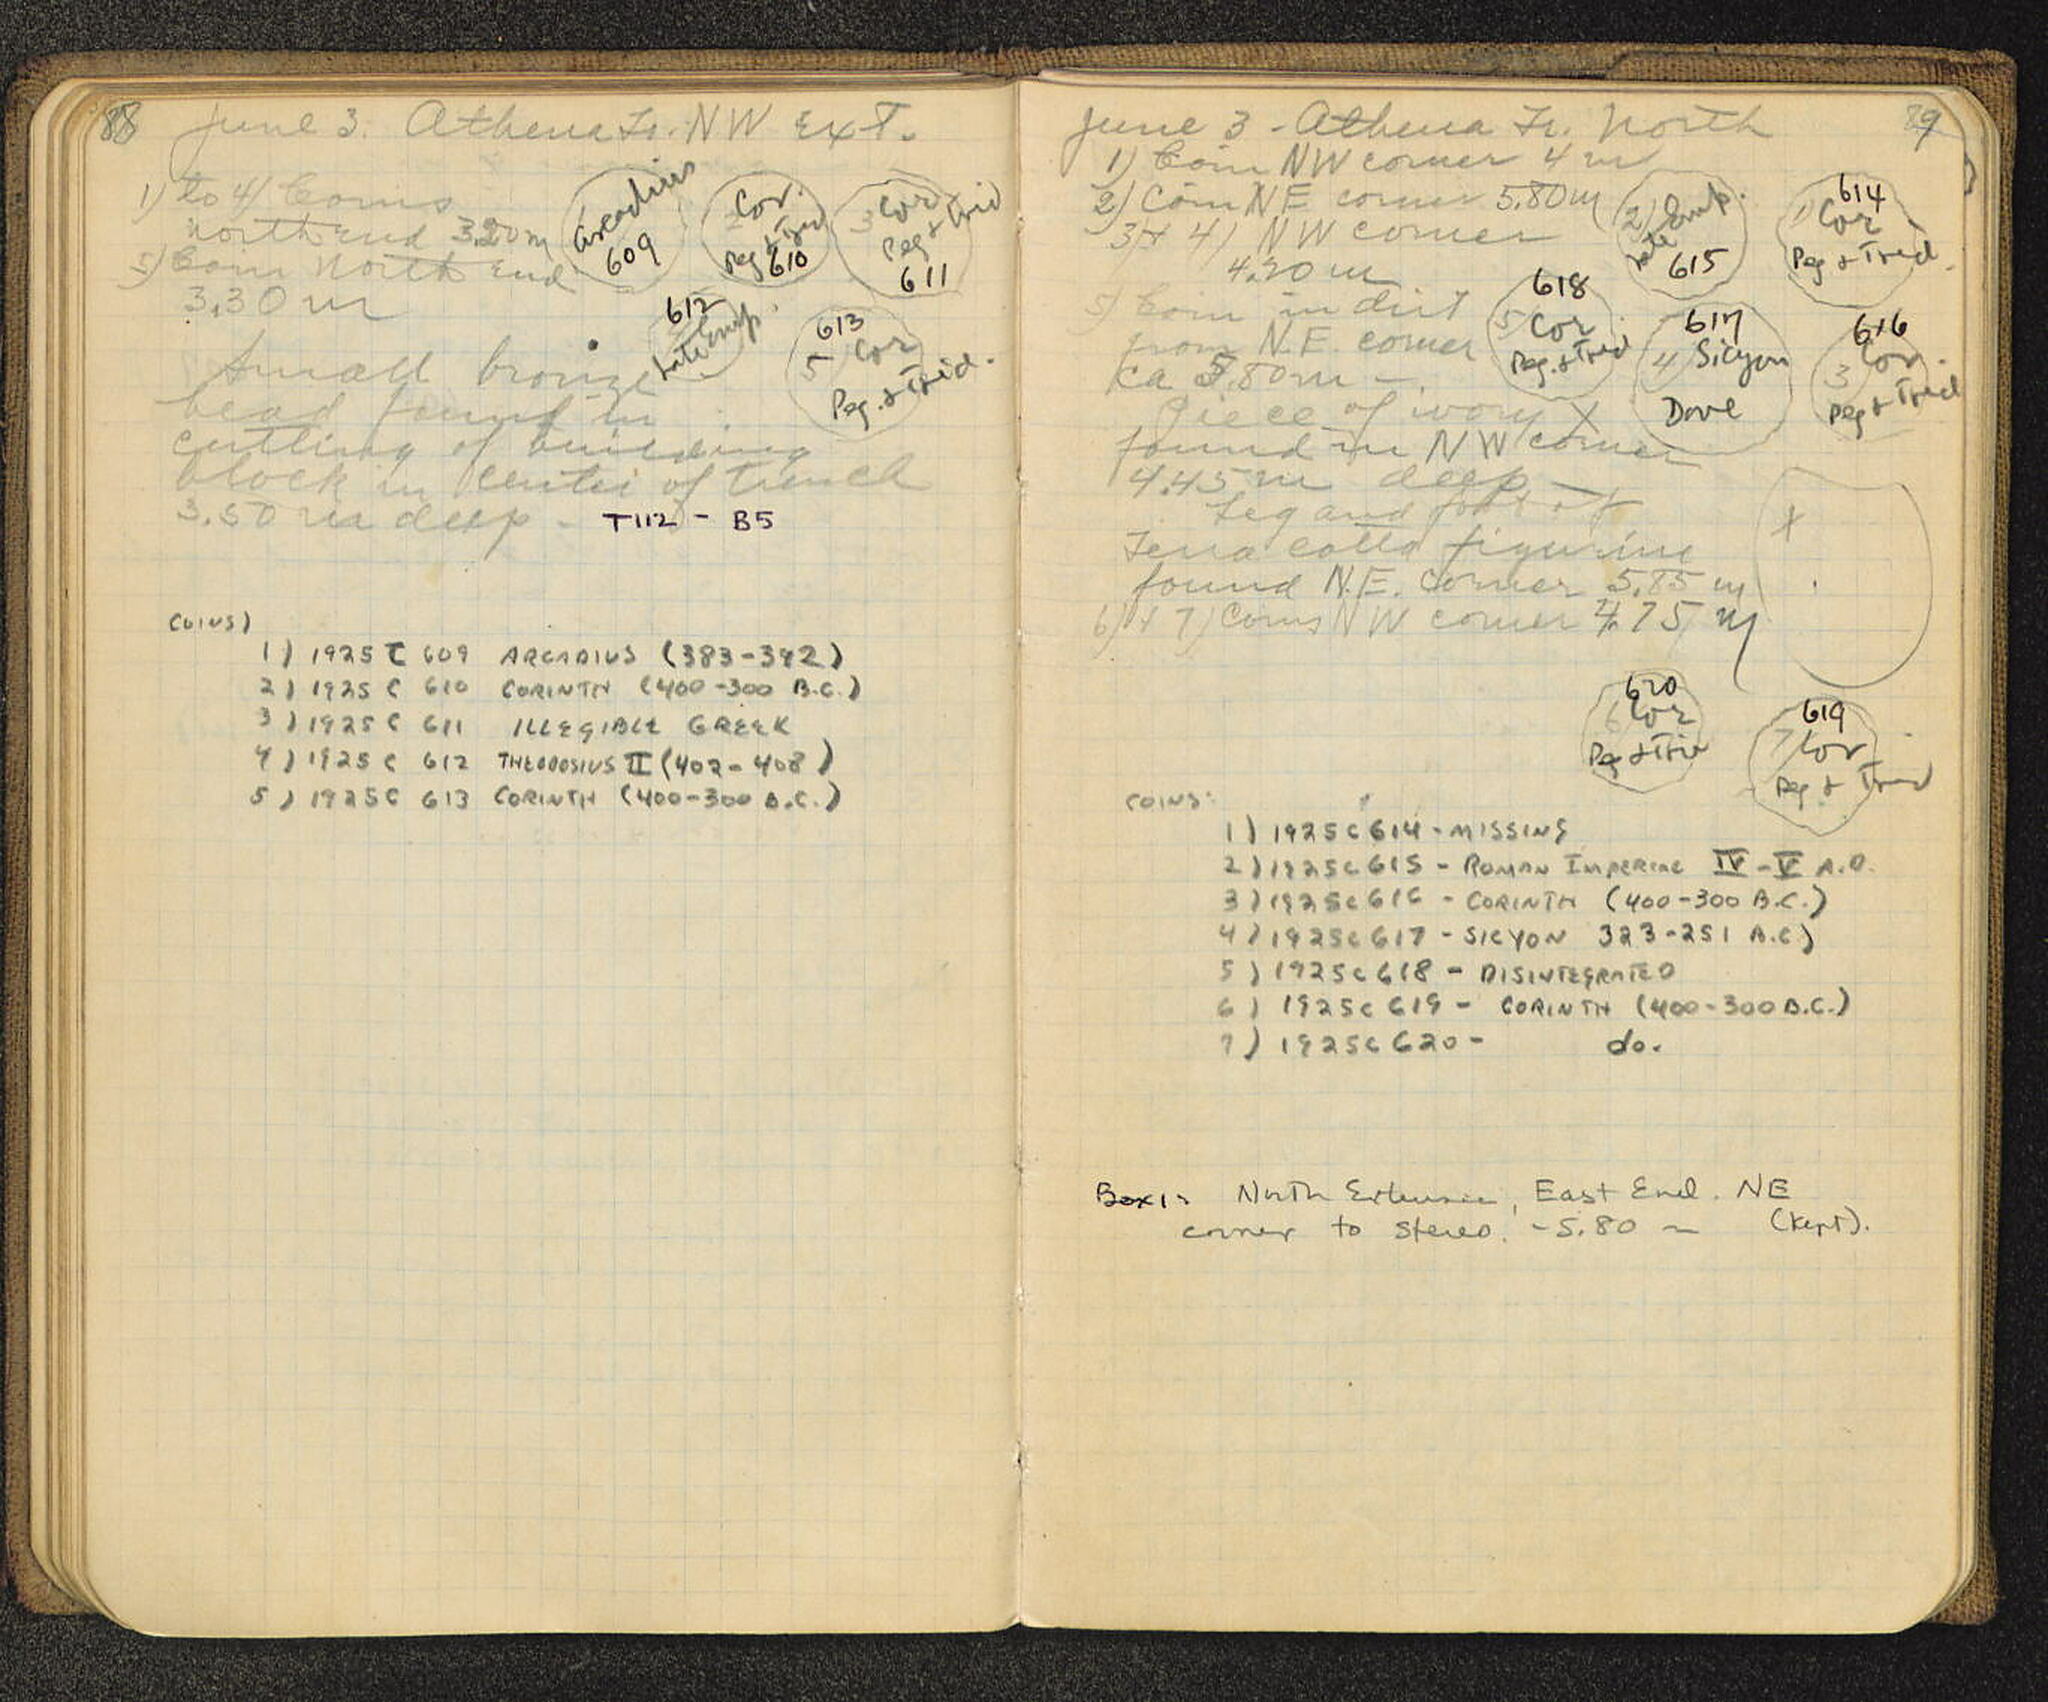 88 June 3. Athena Tr. NW Ext.
1) to 4) Coins
North end 3.20 m
5) Coin North end
3.30 m
Arcadius
609
2 Cor.
Peg & Trid
610
3 Cor
Peg & Trid
611
612
Late Emp.
613
5) Cor
Peg. & Trid.
Small bronze
head found in
cutting of building
block in center of trench
3.50 m deep - T112 - B5
COINS)
1) 1925 C 609 ARCADIUS (383-392)
2) 1925 C 610 CORINTH (400-300 B.C.)
3) 1925 C 611 ILLEGIBLE GREEK
4) 1925 C 612 THEODOSIUS II (402-408)
5) 1925 C 613 CORINTH (400-300 B.C.)
June 3 - Athena Tr. North 89
1) Coin NW corner 4 m
2) Coin NE corner 5.80 m
3) & 4) NW corner
4.20 m
5) Coin in dirt
from N.E. corner
ca 5.80 m -
2) Late Emp.
615
614
1) Cor
Peg & Trid.
618
5) Cor
Peg. & Trid
617
4) Sicyon
Dove
616
3 Cor
Peg & Trid
Piece of ivory X
found in NW corner
4.45 m deep -
Leg and foot of
Terra cotta figurine
found N.E. corner 5.85 m
X
6) & 7) Coins NW corner 4.75 m
620
6) Cor
Peg & Tri
619
7) Cor
Peg & Trid
COINS:
1) 1925 C 614 - MISSING
2) 1925 C 615 - ROMAN IMPERIAL IV - V A.D.
3) 1925 C 616 - CORINTH (400-300 B.C.)
4) 1925 C 617 - SICYON 323-251 B.C.)
5) 1925 C 618 - DISINTEGRATED
6) 1925 C 619 - CORINTH (400-300 B.C.)
7) 1925 C 620 - do.
Box 1: North Extension, East End. NE
corner to stereo. -5.80 m (kept).